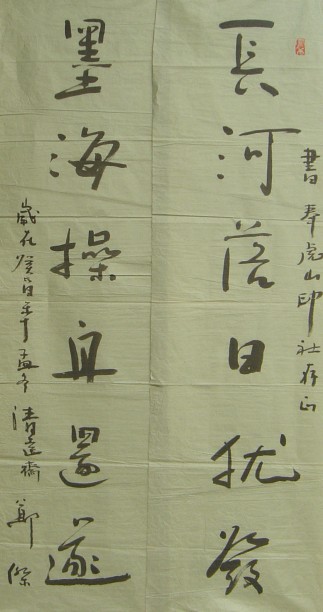 書奉虎山印社存正
長河落日犹發
墨海操舟還遂
歲在癸酉年孟冬清遠齋鄭